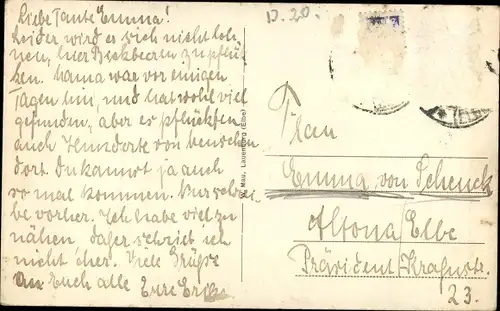 Liebe Tante Emma!
Leider wird es sich nicht loh-
nen, hier Bickbeeren zu pflük-
ken. Mama war vor einigen
Tagen hin, und hat wohl viel
gefunden, aber es pflückten
auch Hunderte von Menschen
dort. Du kannst ja auch
so mal kommen. Nur schrei-
be vorher. Ich habe viel zu
nähen, daher schrieb ich
nicht eher. Viele Grüße
an Euch alle Eure
D. 20.
Mau, Lauenburg (Elbe)
Frau
Emma von Schenck
Altona/Elbe
Präsident Krahnstr.
23.